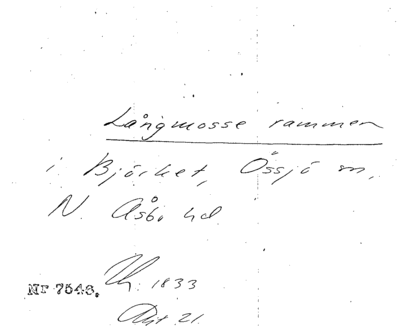 Långmosse rammen
i Björket, Össjö sn,
N. Åsbo hd
Nr 7548. 1833
Akt 21.